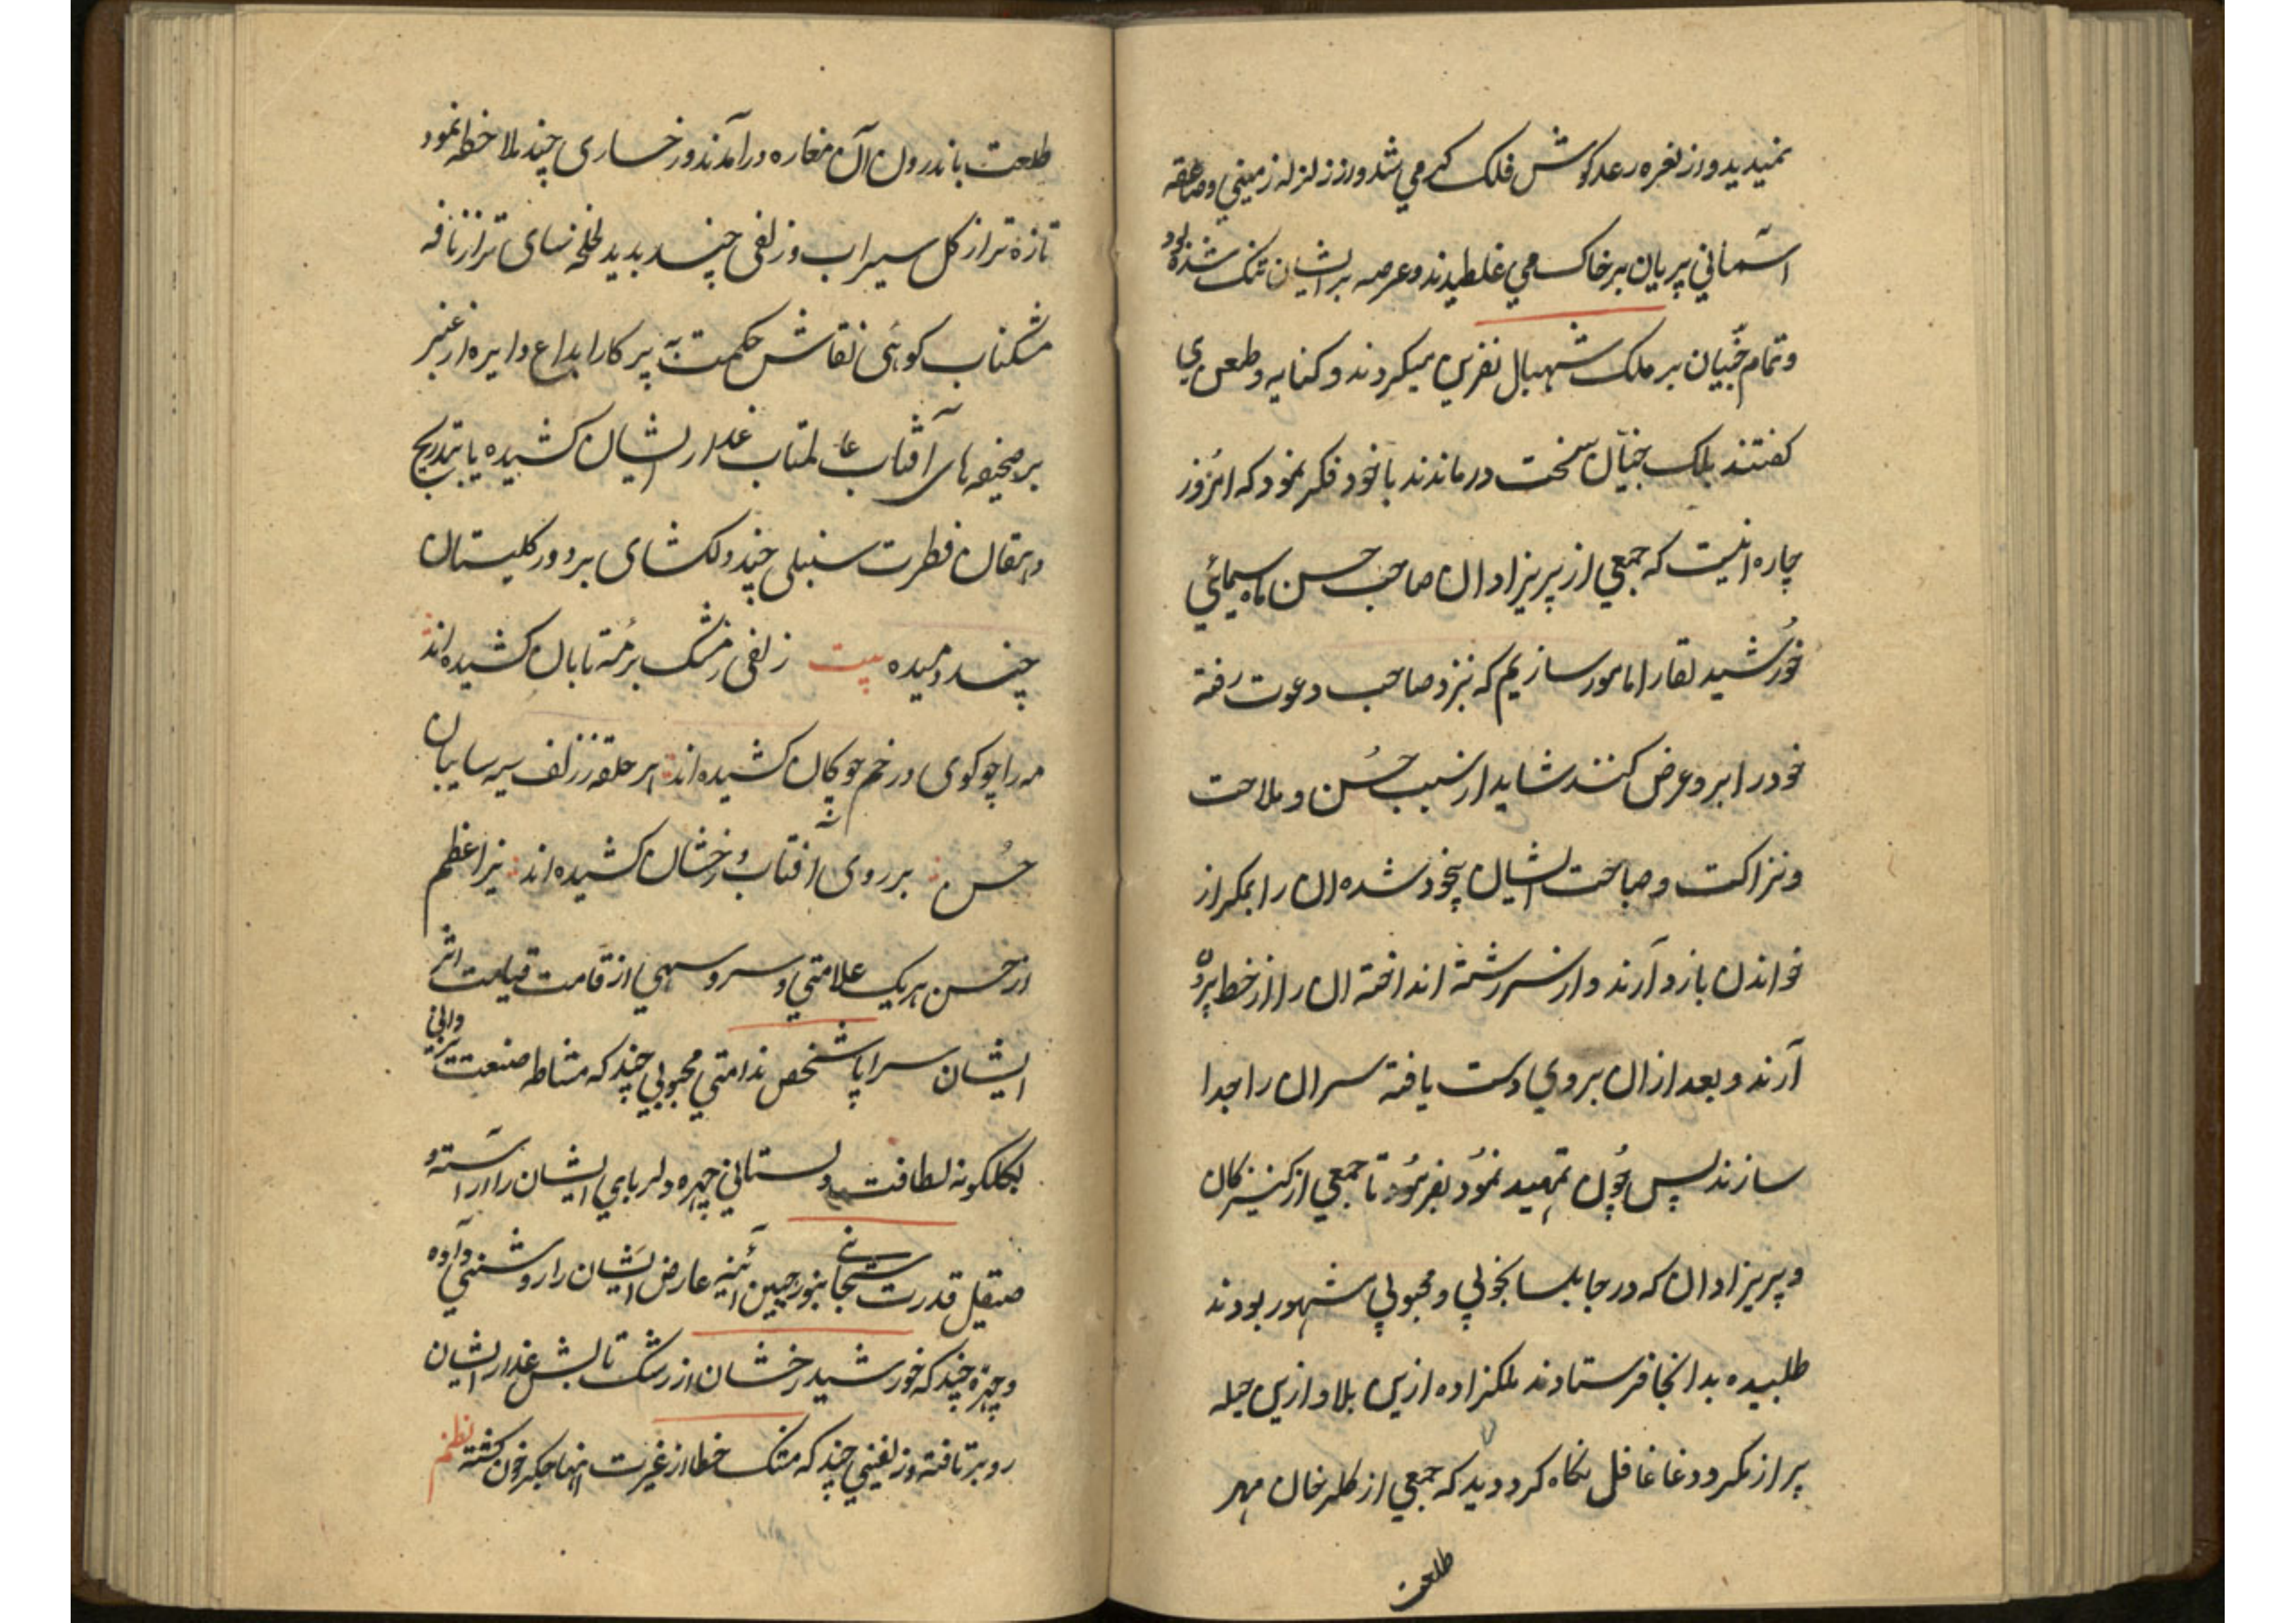 نمیدید و از نعره رعد کوش فلک کر می شد و از زلزله زمینی و صاعقه
آسمانی پریان بر خاک می غلطیدند و عرصه بر ایشان تنک شده بود
و تمام جنّیان بر ملک شهبال نفرین میکردند و کنایه و طعن می
کفتند ملک جنیان سخت درماندند با خود فکر نمود که امروز
چاره انیست که جمعی از پریزادان صاحب حسن ماه سیمائی
خورشید لقا را مامور سازیم که نزد صاحب دعوت رفته
خود را برو عرض کنند شاید از سبب حُسن و ملاحت
و نزاکت و صباحت ایشان بیخود شده ان را بمکر از
خواندن باز دارند و از سررشته انداخته ان را از خط برون
آرند و بعد از ان بروی دست یافته سر ان را جدا
سازند پس چون تمهید نمود بفرمود تا جمعی از کنیزکان
و پریزادان که در جابلسا بخوبی و محبوبی مشهور بودند
طلبیده بدانجا فرستادند ملکزاده ازین بلا و ازین حیله
پر از مکر و دغا غافل نکاه کرد دید که جمعی از کلرخان مهر
طلعت
طلعت باندرون آن مغاره درآمدند و رخساری چند ملاحظه نمود
تازه تر از کل سیراب و زلفی چند بدید لخلخه سای تر از نافه
مشکناب کوئی نقاش حکمت به پرکار ابداع دایره از عنبر
بر صحیفه های آفتاب عالمتاب عذار ایشان کشیده یا بتدریج
دهقان فطرت سنبلی چند دلکشای بر دور کلستان
چند دمیده بیت زلفی ز مشک بر مه تابان کشیده اند
مه را چو کوی در خم چوکان کشیده اند هر حلقه ز زلف سیه سایبان
حُسن بر روی آفتاب درخشان کشیده اند نیر اعظم
از حسن هر یک علامتی و سرو سهی از قامت قیامت اثر
ایشان سراپا شخص ندامتی محبوبی چند که مشاطه صنعت
بکلکونه لطافت و دلستانی چهره دلربای ایشان را آراسته و
صیقل قدرت سبحانی بنور جبین آئینه عارض ایشان را روشنی داده
و چهره چند که خورشید رخشان از رشک تابش عذار ایشان
رو برتافته و زلفینی چند که مشک خطا از غیرت انها جکر خون کشته نظم